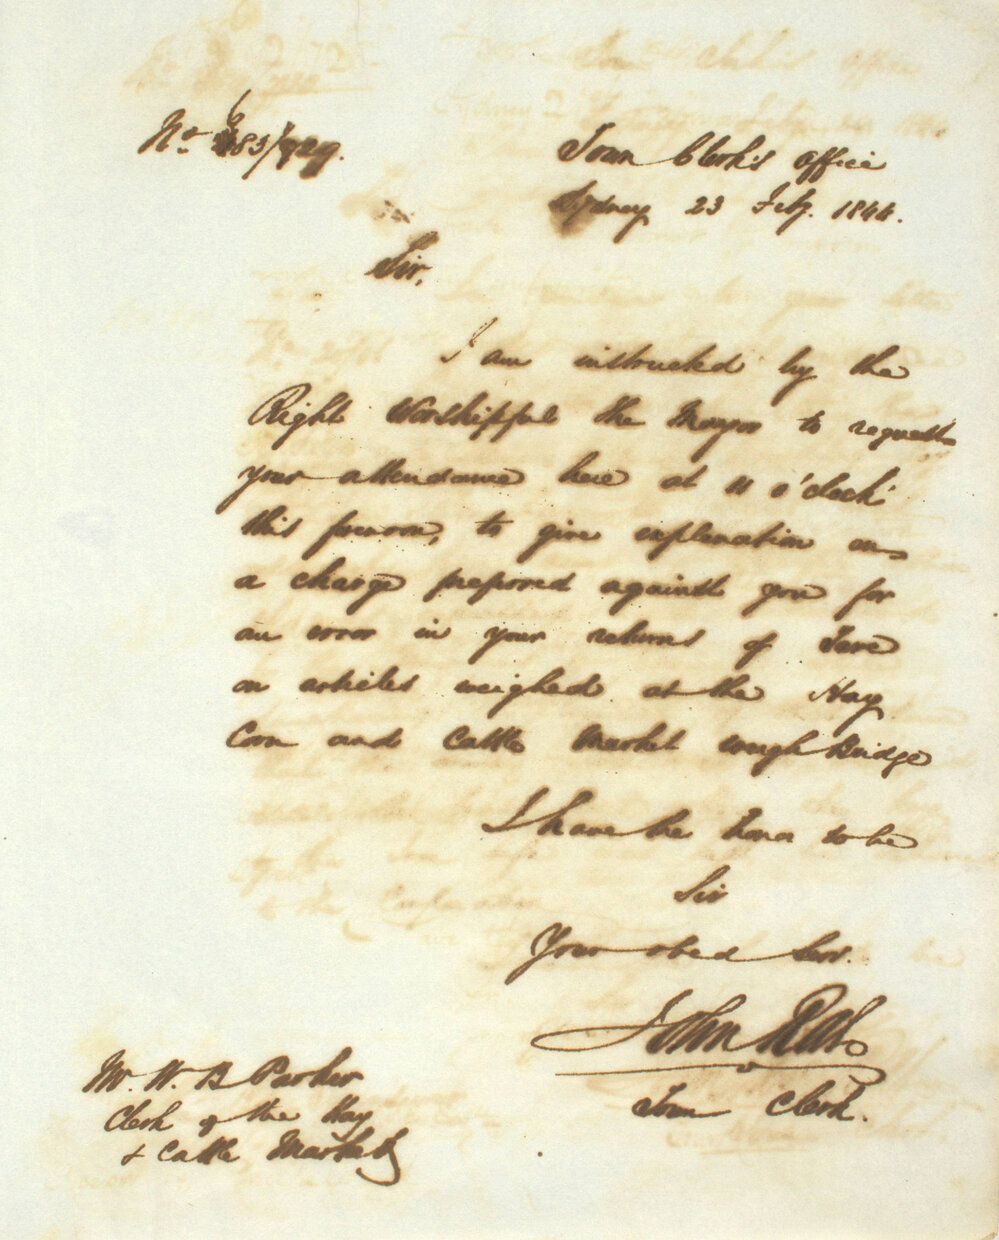 Town Clerk's Office
Sydney 23 Feby. 1844.
Sir,
I am instructed by the
Right Worshipful the Mayor to request
your attendance here at 11 o'clock
this forenoon, to give explanation on
a charge preferred against you for
an error in your returns of Tare
on articles weighed at the Hay
Corn and Cattle Market weigh Bridge
I have the honor to be
Sir
Your obed Serv.
John Rae
Town Clerk.
Mr. W. B Parker
Clerk of the Hay
& Cattle Markets